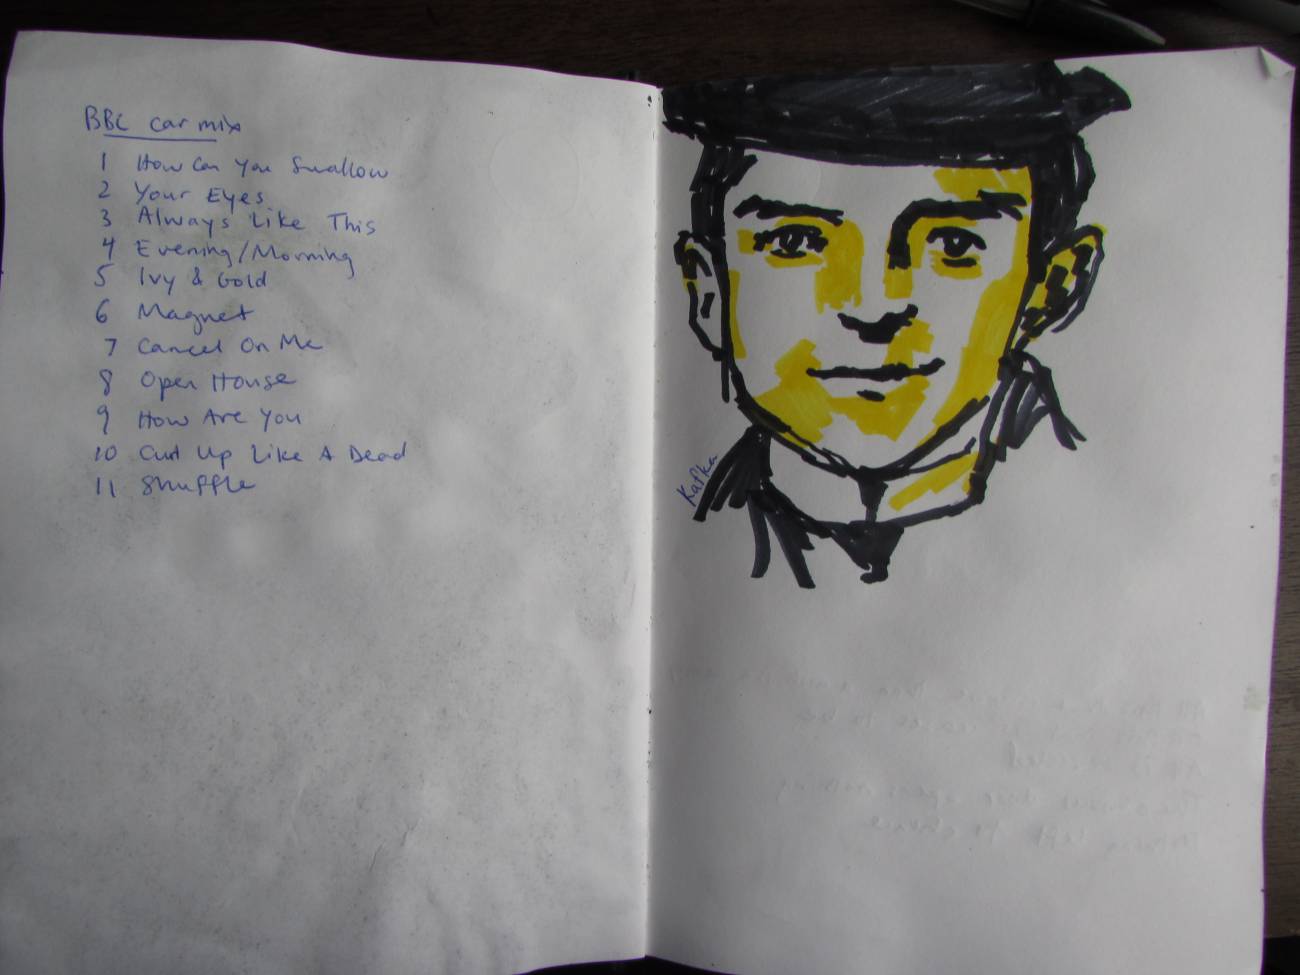 BBC car mix
1 How Can You Swallow
2 Your Eyes
3 Always Like This
4 Evening/Morning
5 Ivy & Gold
6 Magnet
7 Cancel On Me
8 Open House
9 How Are You
10 Curl Up Like A Dead
11 Shuffle
Kafka